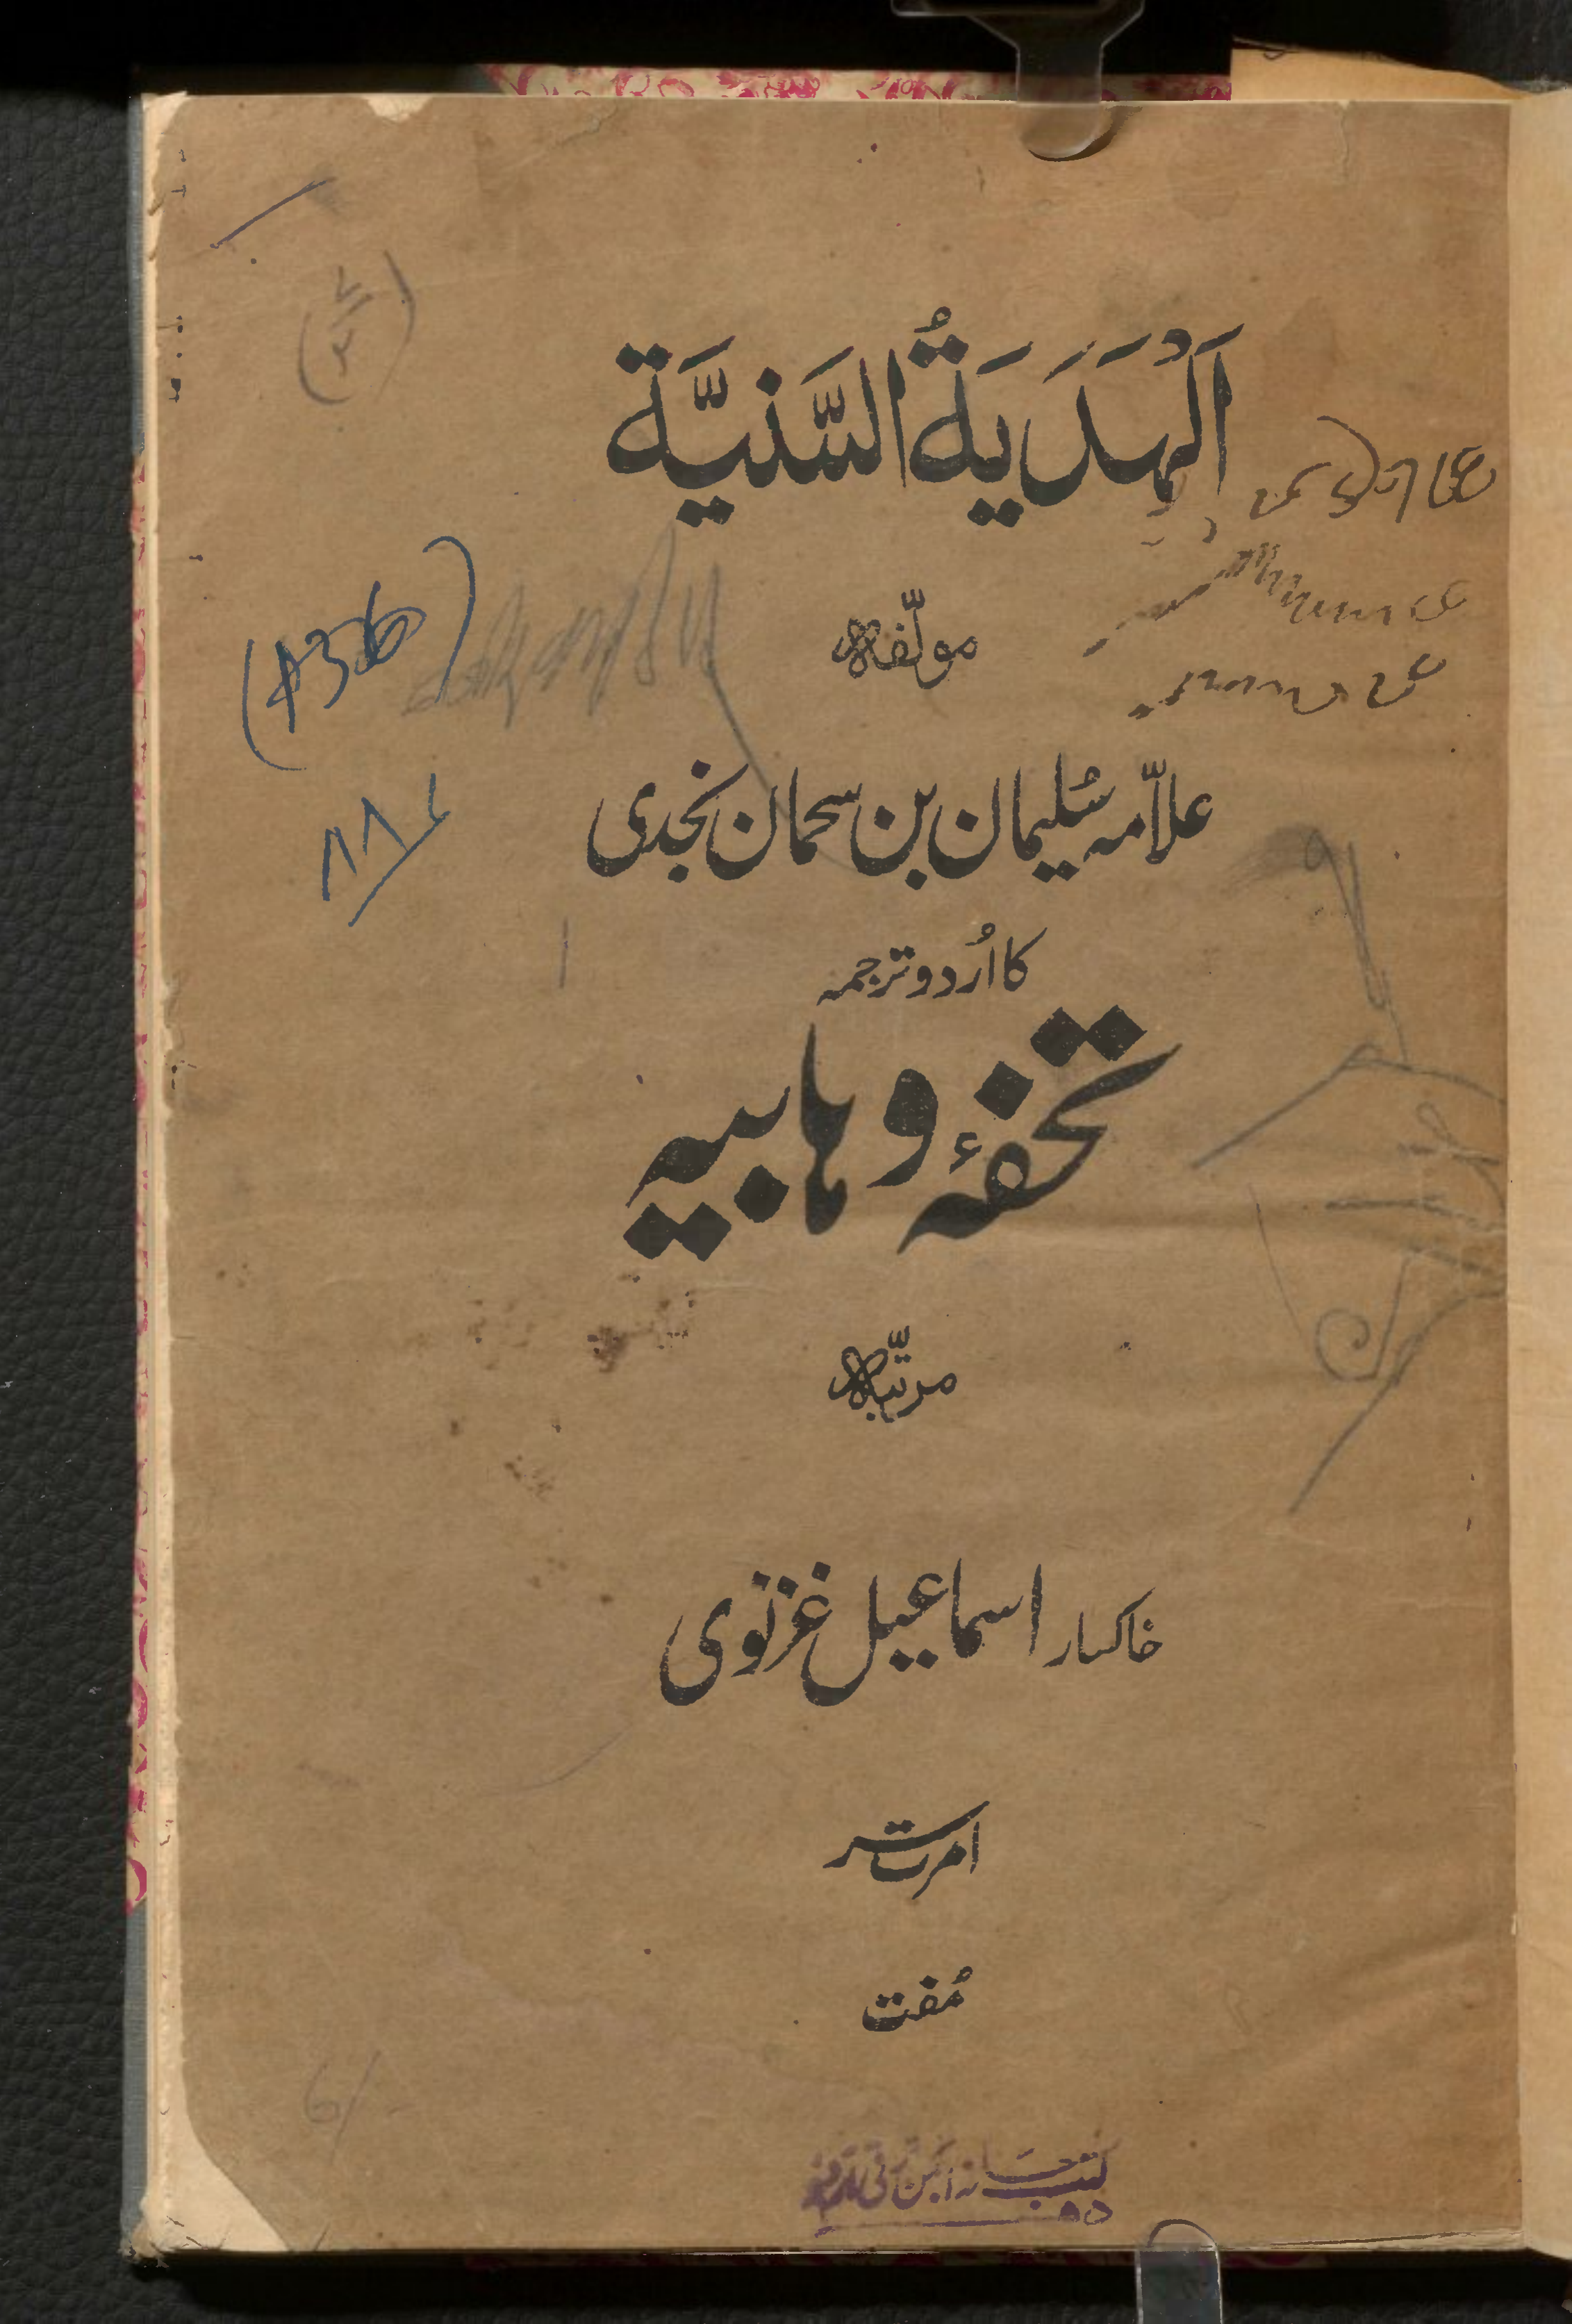 اَلْهَدَيَةُ السَّنيَّة
مولّفہ
علاّمہ سُلیمان بن سحمان نجدی
کا اُردو ترجمہ
تحفۂ وہابیہ
مرتبّہ
خاکسار اسماعیل غزنوی
امرتسر
مُفت
(436)
کتب خانہ انجمن ترقی اردو